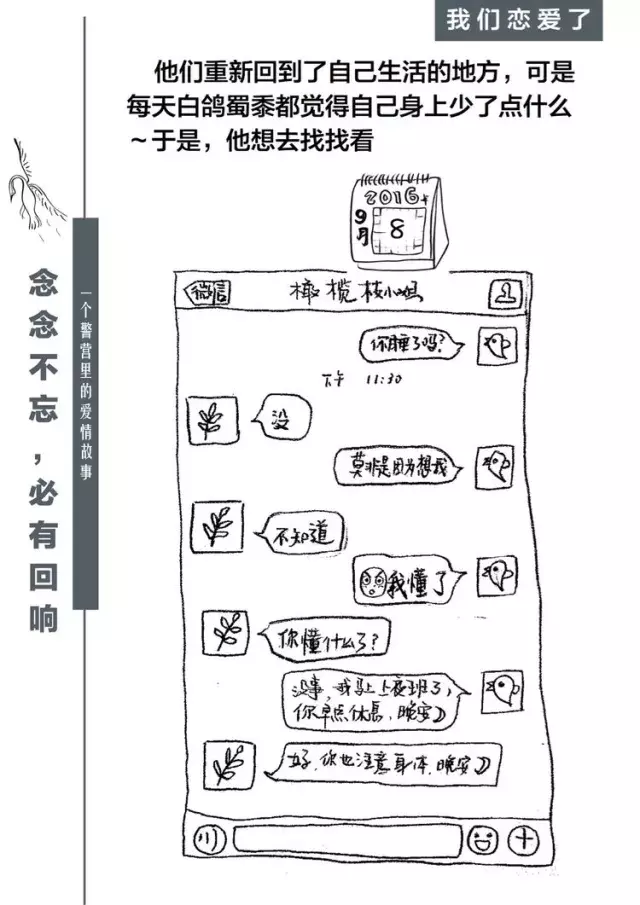 我们恋爱了
他们重新回到了自己生活的地方，可是
每天白鸽蜀黍都觉得自己身上少了点什么
～于是，他想去找找看
念念不忘，必有回响
一个警营里的爱情故事
2016年
9月
8
微信
橄榄枝小姐
你睡了吗？
下午 11:30
没
莫非是因为想我
不知道
我懂了
你懂什么了？
没事，我马上上夜班了，
你早点休息，晚安
好，你也注意身体，晚安